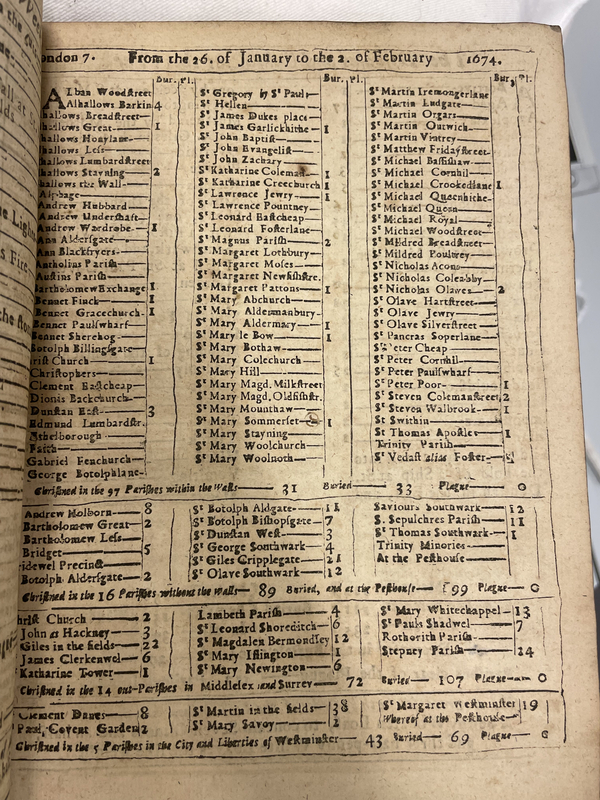 ondon 7. From the 26. of January to the 2. of February 1674.
Bur. Pl.
Alban Woodſtreet
Alhallows Barkin 4
hallows Breadſtreet
hallows Great 1
hallows Honylane
hallows Leſs
hallows Lumbardſtreet
hallows Stayning 2
hallows the Wall
Alphage
Andrew Hubbard
Andrew Underſhaft
Andrew Wardrobe 1
Ann Alderſgate
Ann Blackfryers
Antholins Pariſh
Auſtins Pariſh
BartholomewExchange 1
Bennet Finck 1
Bennet Gracechurch 1
Bennet Paulſwharf
Bennet Sherehog
Botolph Billingſgate
riſt Church 1
Chriſtophers
Clement Eaſtcheap
Dionis Backchurch
Dunſtan Eaſt 3
Edmund Lumbardſtr.
Ethelborough
Faith
Gabriel Fenchurch
George Botolphlane
Bur. Pl.
St Gregory by St Pauls
St Hellen
St James Dukes place
St James Garlickhithe 1
St John Baptiſt
St John Evangeliſt
St John Zachary
St Katharine Coleman 1
St Katharine Creechurch 1
St Lawrence Jewry 1
St Lawrence Pountney
St Leonard Eaſtcheap
St Leonard Foſterlane
St Magnus Pariſh 2
St Margaret Lothbury
St Margaret Moſes
St Margaret Newfiſhſtre.
St Margaret Pattons 1
St Mary Abchurch
St Mary Aldermanbury
St Mary Aldermary 1
St Mary le Bow 1
St Mary Bothaw
St Mary Colechurch
St Mary Hill
St Mary Magd. Milkſtreet
St Mary Magd. Oldfiſhſtr.
St Mary Mounthaw
St Mary Sommerſet 1
St Mary Stayning
St Mary Woolchurch
St Mary Woolnoth
Bur. Pl.
St Martin Iremongerlane
St Martin Ludgate
St Martin Orgars
St Martin Outwich
St Martin Vintrey
St Matthew Fridayſtreet
St Michael Baſſiſhaw
St Michael Cornhil
St Michael Crookedlane 1
St Michael Queenhithe
St Michael Quern
St Michael Royal
St Michael Woodſtreet
St Mildred Breadſtreet
St Mildred Poultrey
St Nicholas Acons
St Nicholas Coleabby
St Nicholas Olaves 2
St Olave Hartſtreet
St Olave Jewry
St Olave Silverſtreet
St Pancras Soperlane
St Peter Cheap
St Peter Cornhil
St Peter Paulſwharf
St Peter Poor 1
St Steven Colemanſtreet 2
St Steven Walbrook 1
St Swithin
St Thomas Apoſtle 1
Trinity Pariſh
St Vedaſt alias Foſter
Chriſtned in the 97 Pariſhes within the Walls 31 Buried 33 Plague 0
Andrew Holborn 8
Bartholomew Great 2
Bartholomew Leſs
Bridget 5
ridewel Precinct
Botolph Alderſgate 2
St Botolph Aldgate 11
St Botolph Biſhopſgate 7
St Dunſtan Weſt 3
St George Southwark 4
St Giles Cripplegate 21
St Olave Southwark 12
Saviours Southwark 12
S. Sepulchres Pariſh 11
St Thomas Southwark 1
Trinity Minories
At the Peſthouſe
Chriſtned in the 16 Pariſhes without the Walls 89 Buried, and at the Peſthouſe 99 Plague 0
hriſt Church 2
John at Hackney 3
Giles in the fields 22
James Clerkenwel 6
Katharine Tower 1
Lambeth Pariſh 4
St Leonard Shoreditch 6
St Magdalen Bermondſey 12
St Mary Iſlington 1
St Mary Newington 6
St Mary Whitechappel 13
St Pauls Shadwel 7
Rothorith Pariſh
Stepney Pariſh 24
Chriſtned in the 14 out-Pariſhes in Middleſex and Surrey 72 Buried 107 Plague 0
Clement Danes 8
Paul Covent Garden 2
St Martin in the fields 38
St Mary Savoy 2
St Margaret Weſtminſter 19
Whereof at the Peſthouſe
Chriſtned in the 5 Pariſhes in the City and Liberties of Weſtminſter 43 Buried 69 Plague 0